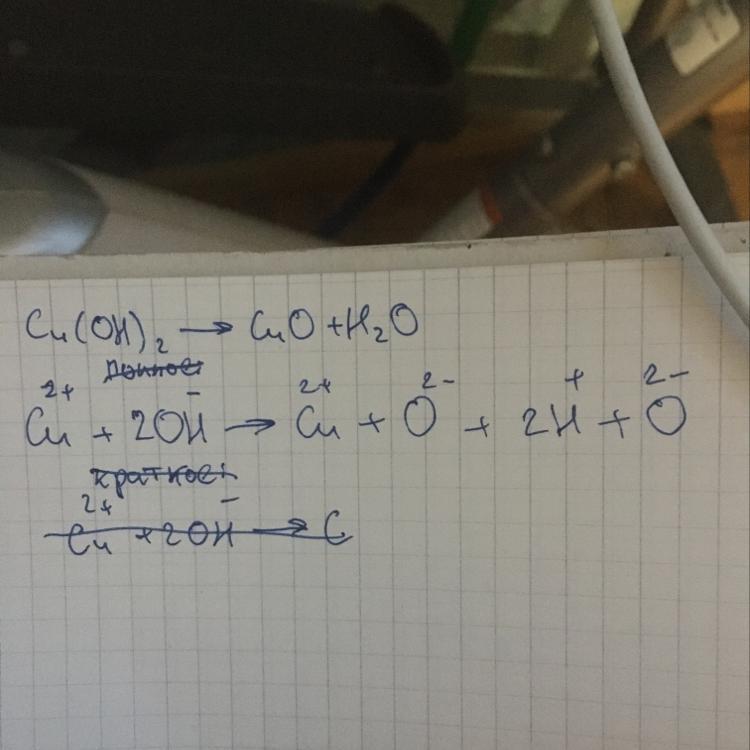 Cu(OH)₂ → CuO + H₂O
полное
Cu²⁺ + 2OH⁻ → Cu²⁺ + O²⁻ + 2H⁺ + O²⁻
краткое
Cu²⁺ + 2OH⁻ → C